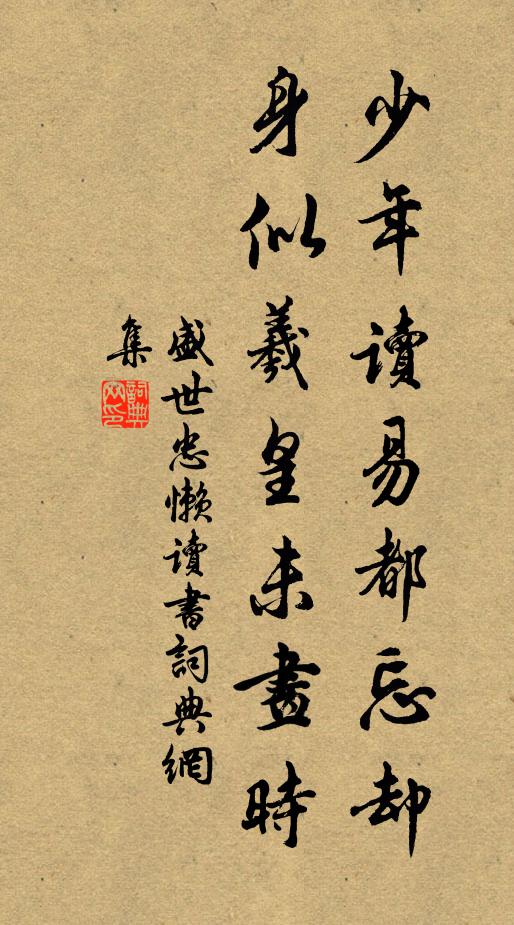 少年讀易都忘却
身似羲皇未畫時
盛世忠懶讀書詞典網
集
詞典網印